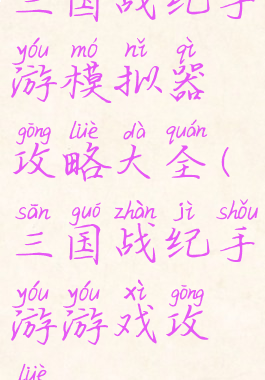 三国战纪手
yóu mó nǐ qì
游模拟器
gōng lüè dà quán
攻略大全(
sān guó zhàn jì shǒu
三国战纪手
yóu yóu xì gōng
游游戏攻
lüè